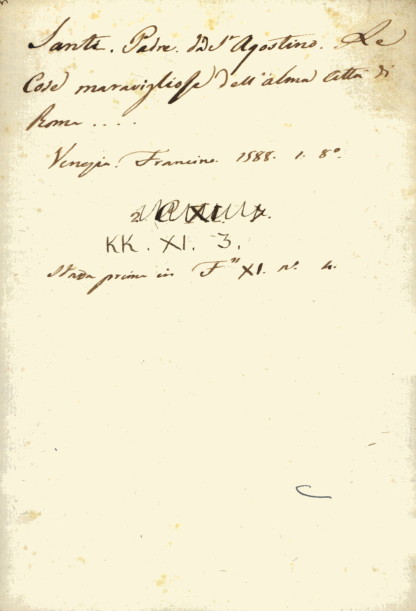 Santi. Padre. dd St Agostino. Le
Cose maravigliose dell'alma Città di
Roma ....
Venezia. Francino. 1588. 1. 8o.
XI.
KK. XI. 3.
Stava prima in F" XI. no. 4.